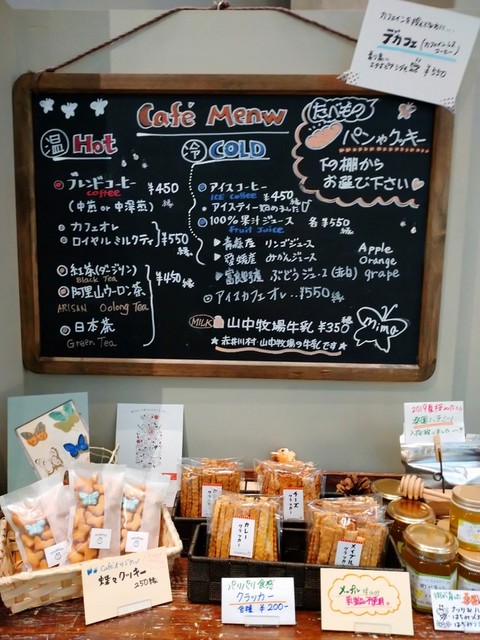 デカフェ (カフェインレスコーヒー)
¥550
Café Menu
たべもの
パンやクッキー
下の棚から
お選び下さい
温 Hot
ブレンドコーヒー ¥450
coffee
(中煎 or 中深煎)
カフェオレ
ロイヤルミルクティ ¥550
紅茶(ダージリン) ¥450
Black Tea
阿里山ウーロン茶
ARISAN Oolong Tea
日本茶
Green Tea
冷 COLD
アイスコーヒー ¥450
ICE coffee
アイスティー始めました
100%果汁ジュース 各¥550
Fruit Juice
青森産 リンゴジュース Apple
愛媛産 みかんジュース Orange
富良野産 ぶどうジュース(赤白) grape
アイスカフェオレ...¥550
MILK 山中牧場牛乳 ¥350
☆赤井川村・山中牧場の牛乳です☆
mima
蝶々クッキー
250
カレー
クラッカー
チーズ
クラッカー
メイプル
クラッカー
パリパリ食感
クラッカー
各種 ¥200-
メープル
乳製品不使用。